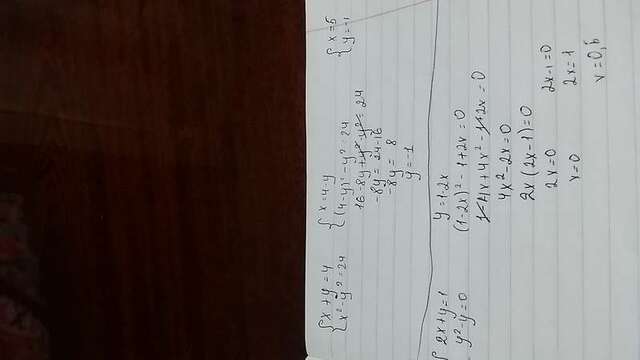 {x + y = 4
{x² - y² = 24
{x = 4 - y
{(4 - y)² - y² = 24
16 - 8y + y² - y² = 24
-8y = 24 - 16
-8y = 8
y = -1
{x = 5
{y = -1
{2x + y = 1
y² - y = 0
y = 1 - 2x
(1 - 2x)² - 1 + 2x = 0
1 - 4x + 4x² - 1 + 2x = 0
4x² - 2x = 0
2x (2x - 1) = 0
2x = 0
x = 0
2x - 1 = 0
2x = 1
x = 0,5